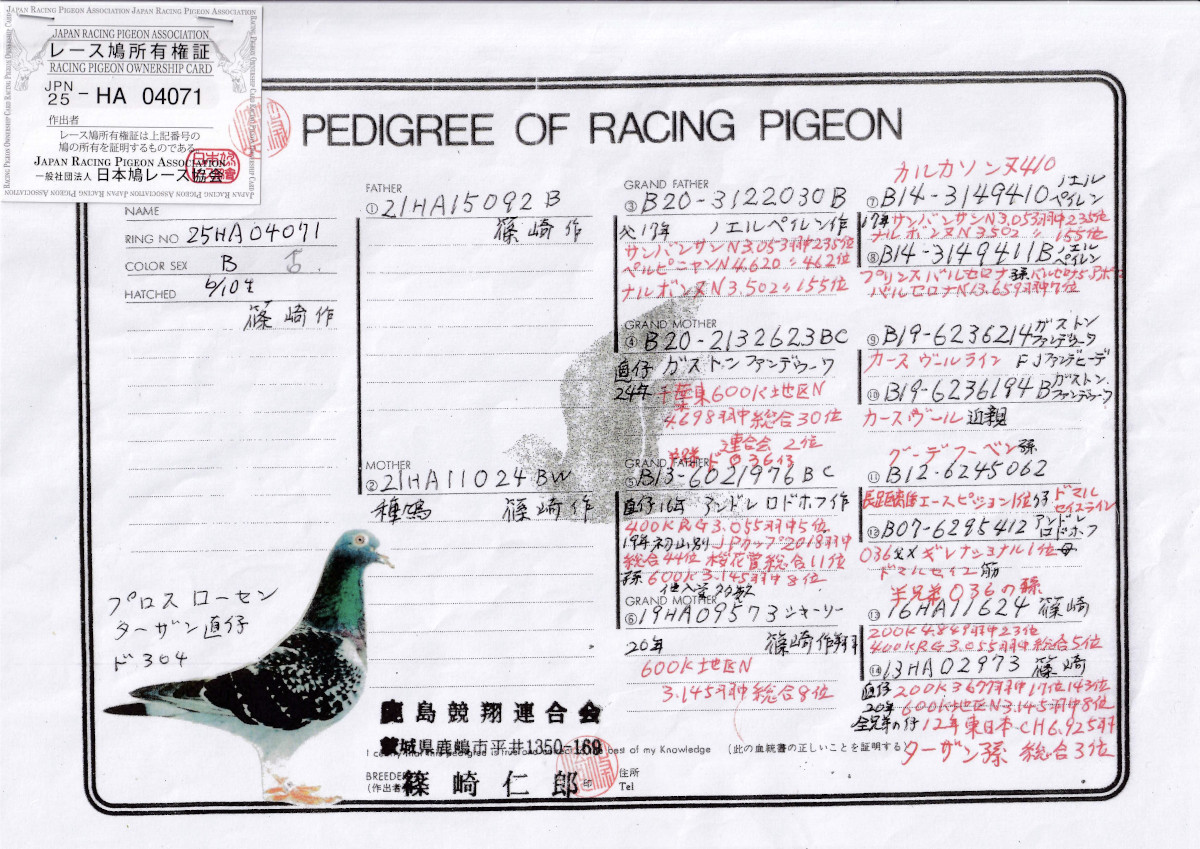 JAPAN RACING PIGEON ASSOCIATION JAPAN RACING PIGEON ASSOCIATION
JAPAN RACING PIGEON ASSOCIATION
レース鳩所有権証
RACING PIGEON OWNERSHIP CARD
JPN 25 - HA 04071
作出者
レース鳩所有権証は上記番号の
鳩の所有を証明するものである。
JAPAN RACING PIGEON ASSOCIATION
一般社団法人 日本鳩レース協会
PEDIGREE OF RACING PIGEON
NAME
RING NO 25HA04071
COLOR SEX B ♂
HATCHED 6/10生
篠崎作
プロス ローセン
ターザン直仔
ド304
FATHER
① 21HA15092 B
篠崎作
MOTHER
② 21HA11024 BW
種鳩 篠崎作
GRAND FATHER
③ B20-3122030B
父17年 ノエルペイレン作
サンバンサンN3.053羽中235位
ペルピニャンN4.620〃462位
ナルボンヌN3.502〃155位
GRAND MOTHER
④ B20-2132623BC
直仔 ガストンファンデワーワ
24年 千葉東600K地区N
4.698羽中総合30位
連合会2位
GRAND FATHER
⑤ B13-6021976BC
直仔16年 アンドレ ロドホフ作
400KRG3.055羽中5位
19年初山別JPカップ2018羽中
総合44位 桜花賞総合11位
孫600K3.145羽中8位
他入賞多数
GRAND MOTHER
⑥ 19HA09573 シャーリー
20年 篠崎作翔
600K地区N
3.145羽中総合8位
カルカソンヌ410
⑦ B14-3149410 ノエルペイレン
17年サンバンサンN3.053羽中235位
ナルボンヌN3.502〃155位
⑧ B14-3149411B ノエルペイレン
プリンスバルセロナ孫
バルセロナN13.659羽中7位
⑨ B19-6236214 ガストンファンデワーワ
カースヴールライン FJファンデヒーデ
⑩ B19-6236194B ガストンファンデワーワ
カースヴール近親
グーデフーベン孫
⑪ B12-6245062
長距離エースピジョン1位仔 ドマルセイユライン
⑫ B07-6295412 アンドレロドホフ
036父×ギレナショナル1位母
ドマルセイユ筋
半兄弟036の孫
⑬ 16HA11624 篠崎
200K4.849羽中23位
400KRG3.055羽中総合5位
⑭ 13HA02973 篠崎
直仔200K3677羽中17位143位
20年600K地区N3.145羽中8位
全兄弟の仔12年東日本CH6.925羽
ターザン孫 総合3位
鹿島競翔連合会
茨城県鹿嶋市平井1350-169
best of my Knowledge (此の血統書の正しいことを証明する)
BREEDER
(作出者)
篠崎仁郎
印
住所
Tel